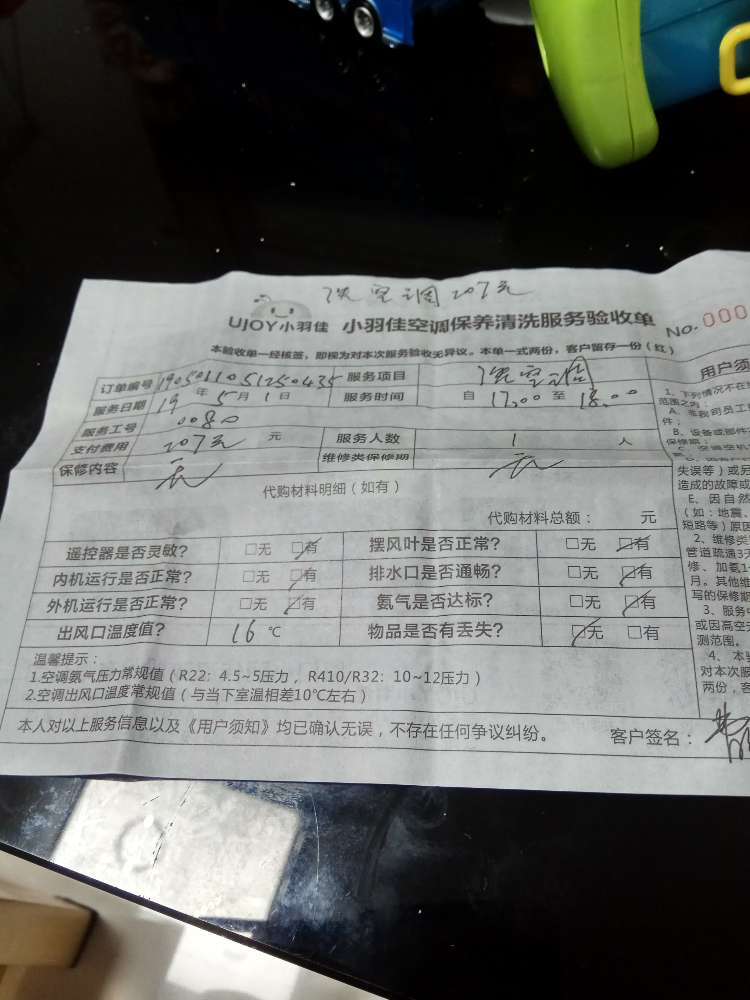 洗空调207元
UJOY小羽佳 小羽佳空调保养清洗服务验收单 No.000
本验收单一经核签，即视为对本次服务验收无异议。本单一式两份，客户留存一份（红）
订单编号 1905011051250435 服务项目 洗空调
服务日期 19年5月1日 服务时间 自 17:00 至 18:00
服务工号 0080
支付费用 207元 元 服务人数 1 人
保修内容 无 维修类保修期 无
代购材料明细（如有）
代购材料总额： 元
遥控器是否灵敏？ □无 □有 摆风叶是否正常？ □无 □有
内机运行是否正常？ □无 □有 排水口是否通畅？ □无 □有
外机运行是否正常？ □无 □有 氨气是否达标？ □无 □有
出风口温度值？ 16 ℃ 物品是否有丢失？ □无 □有
温馨提示：
1.空调氨气压力常规值（R22：4.5~5压力，R410/R32：10~12压力）
2.空调出风口温度常规值（与当下室温相差10℃左右）
本人对以上服务信息以及《用户须知》均已确认无误，不存在任何争议纠纷。 客户签名：
用户须
1、下列情况不在
范围之内
A、非我司员工
件；
B、设备或部件
保修期；
失误等）或另
造成的故障或
E、因自然
（如：地震、
短路等）原因
2、维修类
管道疏通3天
修、加氨1
月。其他维
写的保修期
3、服务
或因高空
测范围。
4、本
对本次服
两份，客